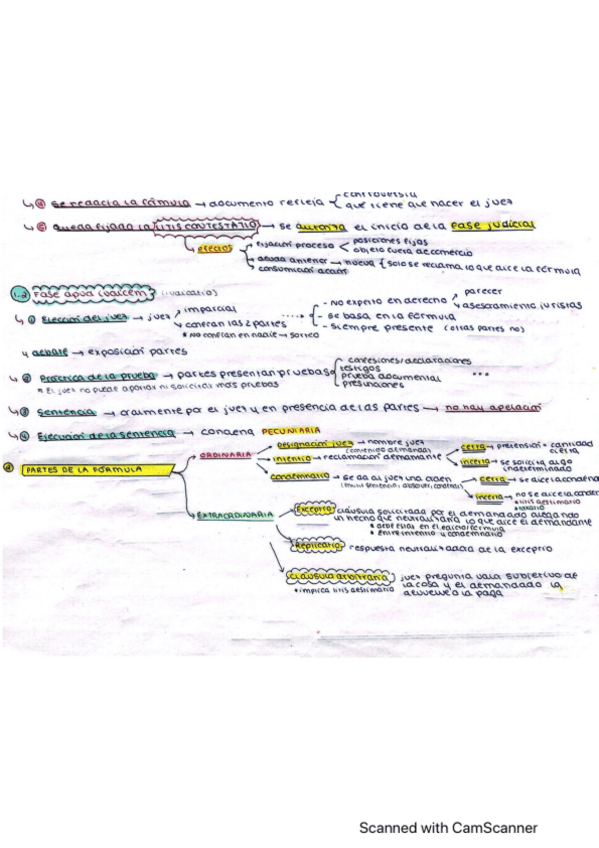 controversia
↳ ④ Se redacta la fórmula → documento refleja que tiene que hacer el juez
↳ ⑤ Queda fijada la LITIS CONTESTATIO → se autoriza el inicio de la Fase judicial
efectos → fijación proceso < posiciones fijas
objeto fuera de comercio
deuda anterior → nueva { solo se reclama lo que dice la fórmula
consumición acción
1.2 Fase apud iudicem (iudicatio)
parecer
↳ ① Elección del juez → juez → imparcial
- No experto en derecho → asesoramiento juristas
confían las 2 partes
- se basa en la fórmula
* No confían en nadie → sorteo
- Siempre presente (otras partes no)
debate → exposición partes
↳ ② Práctica de la prueba → partes presentan pruebas
confesiones/declaraciones
testigos
prueba documental
presunciones
* El juez no puede aportar ni solicitar más pruebas
↳ ③ Sentencia → oralmente por el juez y en presencia de las partes → no hay apelación
↳ ④ Ejecución de la sentencia → condena PECUNIARIA
PARTES DE LA FÓRMULA
ORDINARIA
Designación juez → nombre juez
intentio → reclamación demandante
certa → pretensión + cantidad cierta
incerta → se solicita algo indeterminado
condemnatio → se da al juez una orden
certa → se dice la condena
incerta → no se dice la
* litis aestimatio
EXTRAORDINARIA
Exceptio cláusula solicitada por el demandado alegando
un hecho que neutralizaría lo que dice el demandante
* entre intentio y condemnatio
Replicatio → respuesta neutralizada de la exceptio
Cláusula arbitraria juez pregunta valor subjetivo de
la cosa y el demandado la
devuelve o la paga
* implica litis aestimatio
Scanned with CamScanner